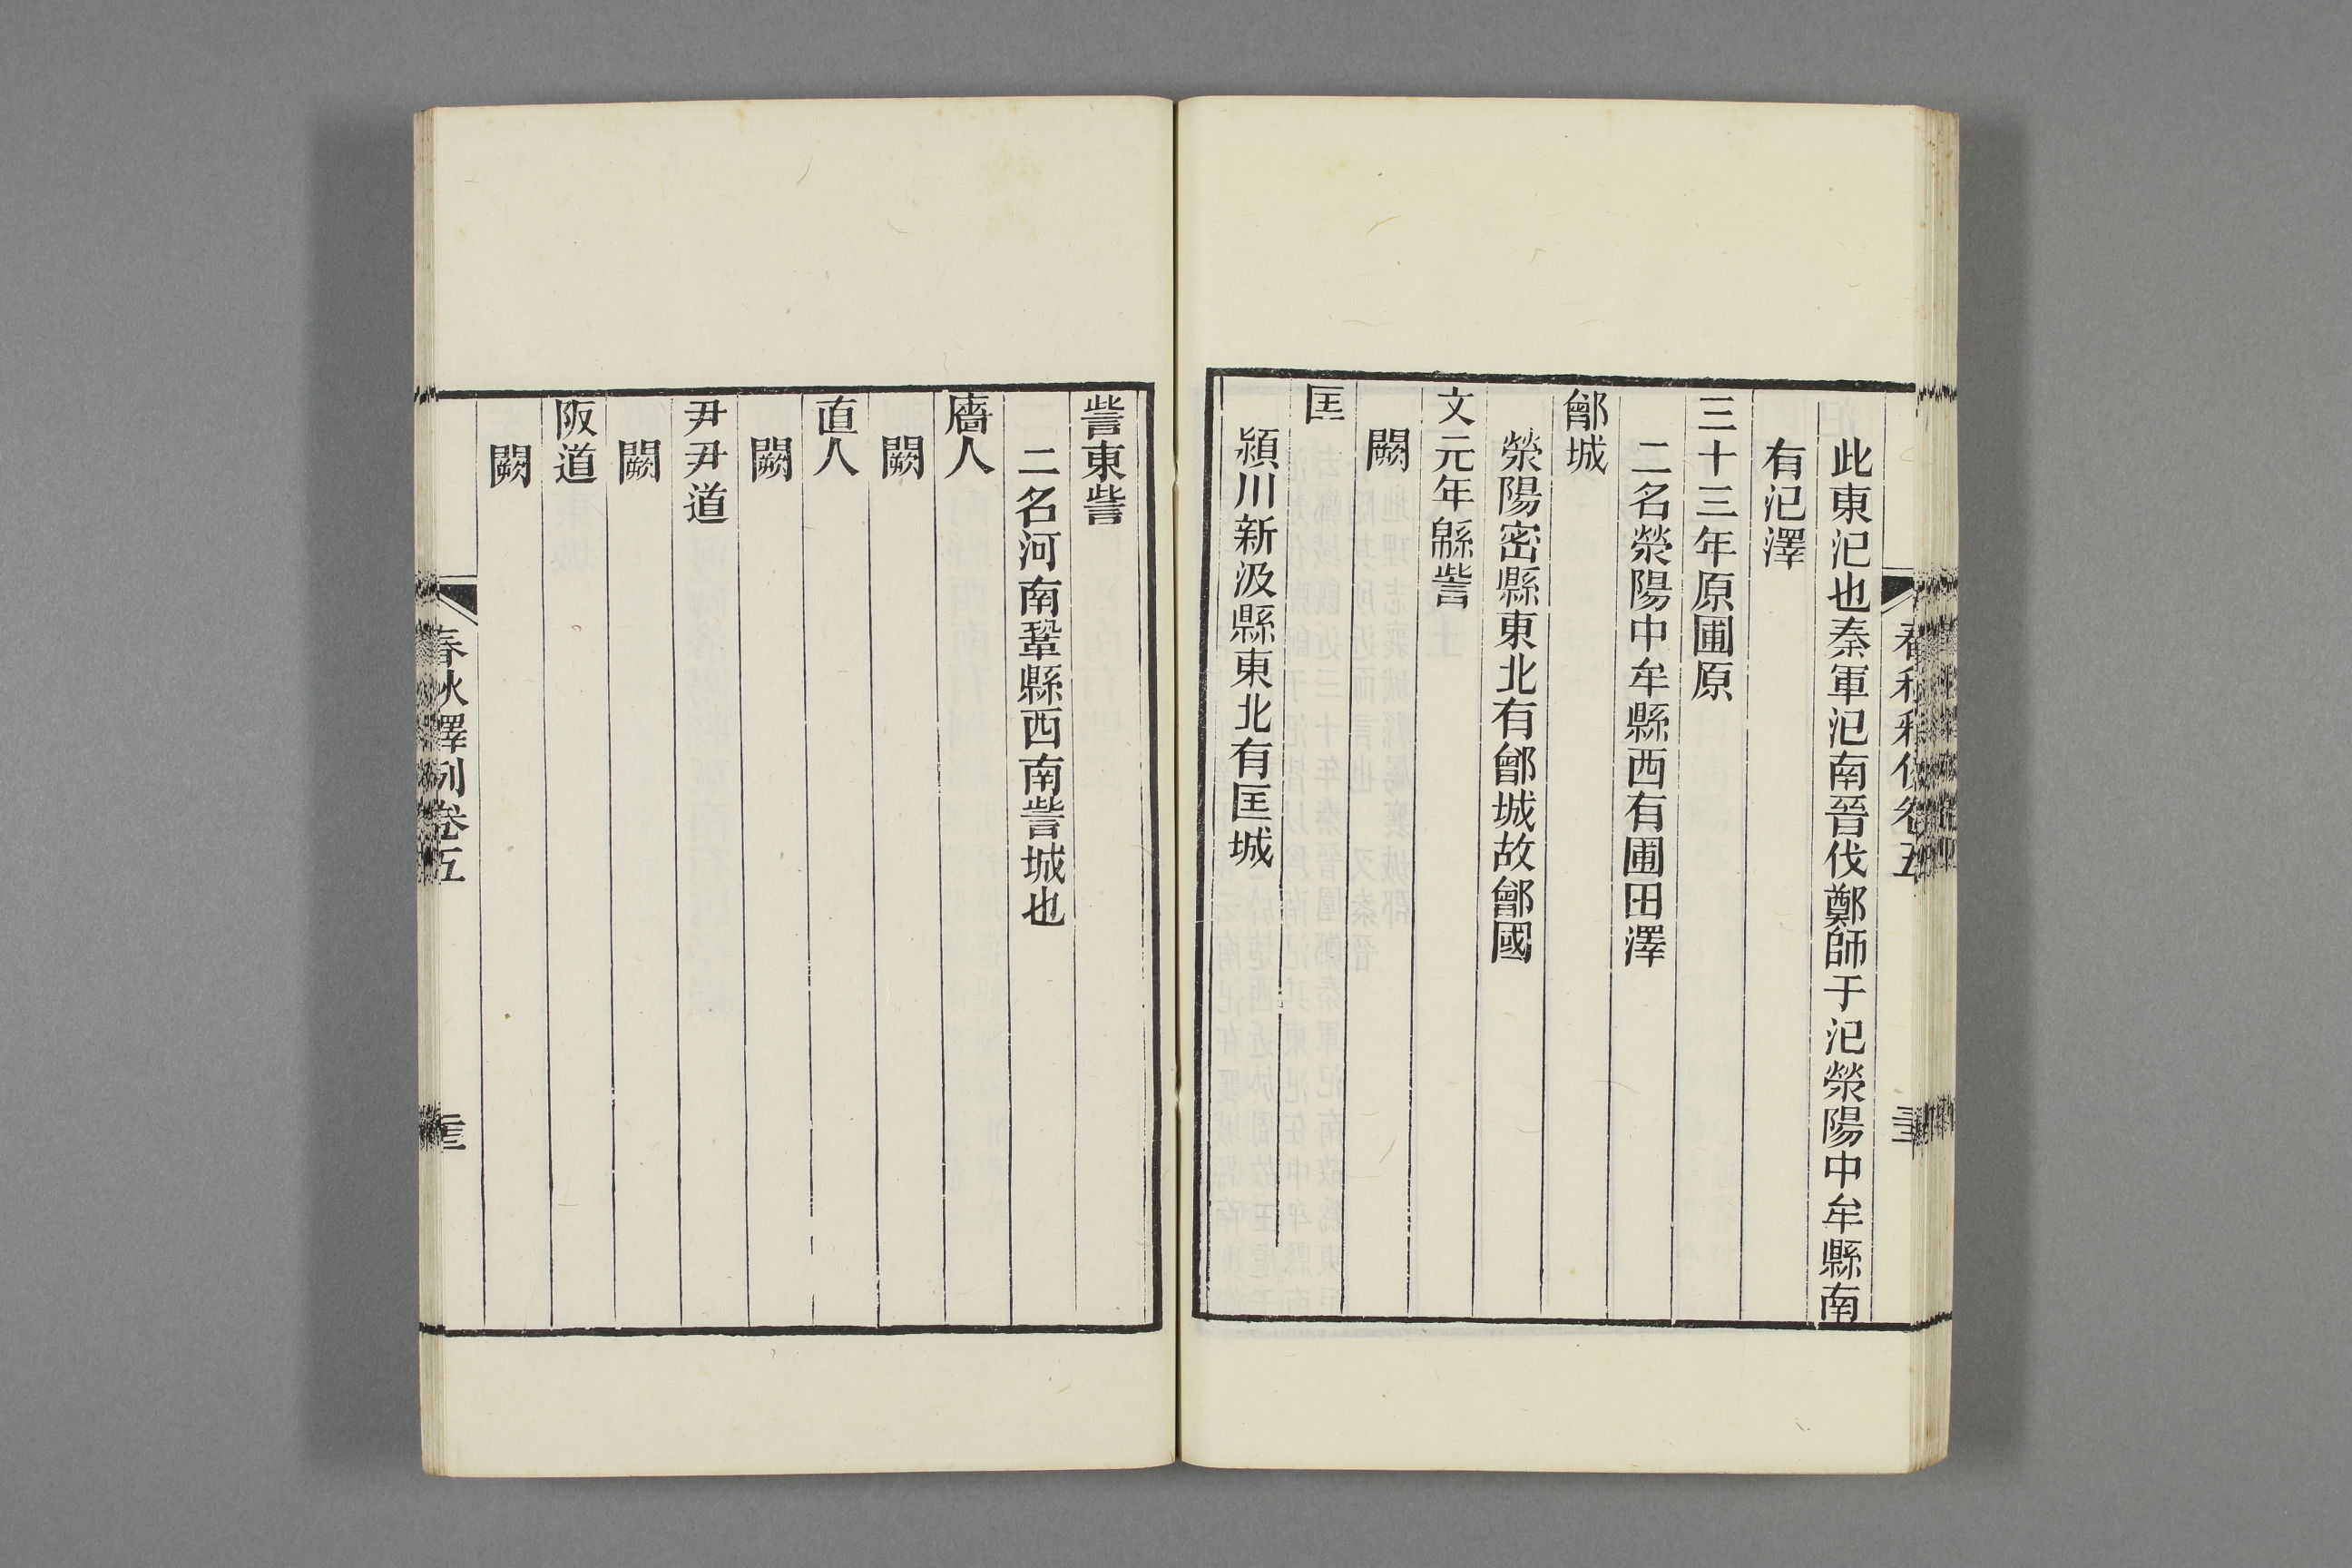 此東汜也秦軍汜南晉伐鄭師于汜滎陽中牟縣南
有汜澤
三十三年原圃原
二名滎陽中牟縣西有圃田澤
鄶城
滎陽密縣東北有鄶城故鄶國
文元年緜訾
闕
匡
潁川新汲縣東北有匡城
訾東訾
二名河南鞏縣西南訾城也
廧人
闕
直人
闕
尹尹道
闕
阪道
闕
春秋釋例卷五